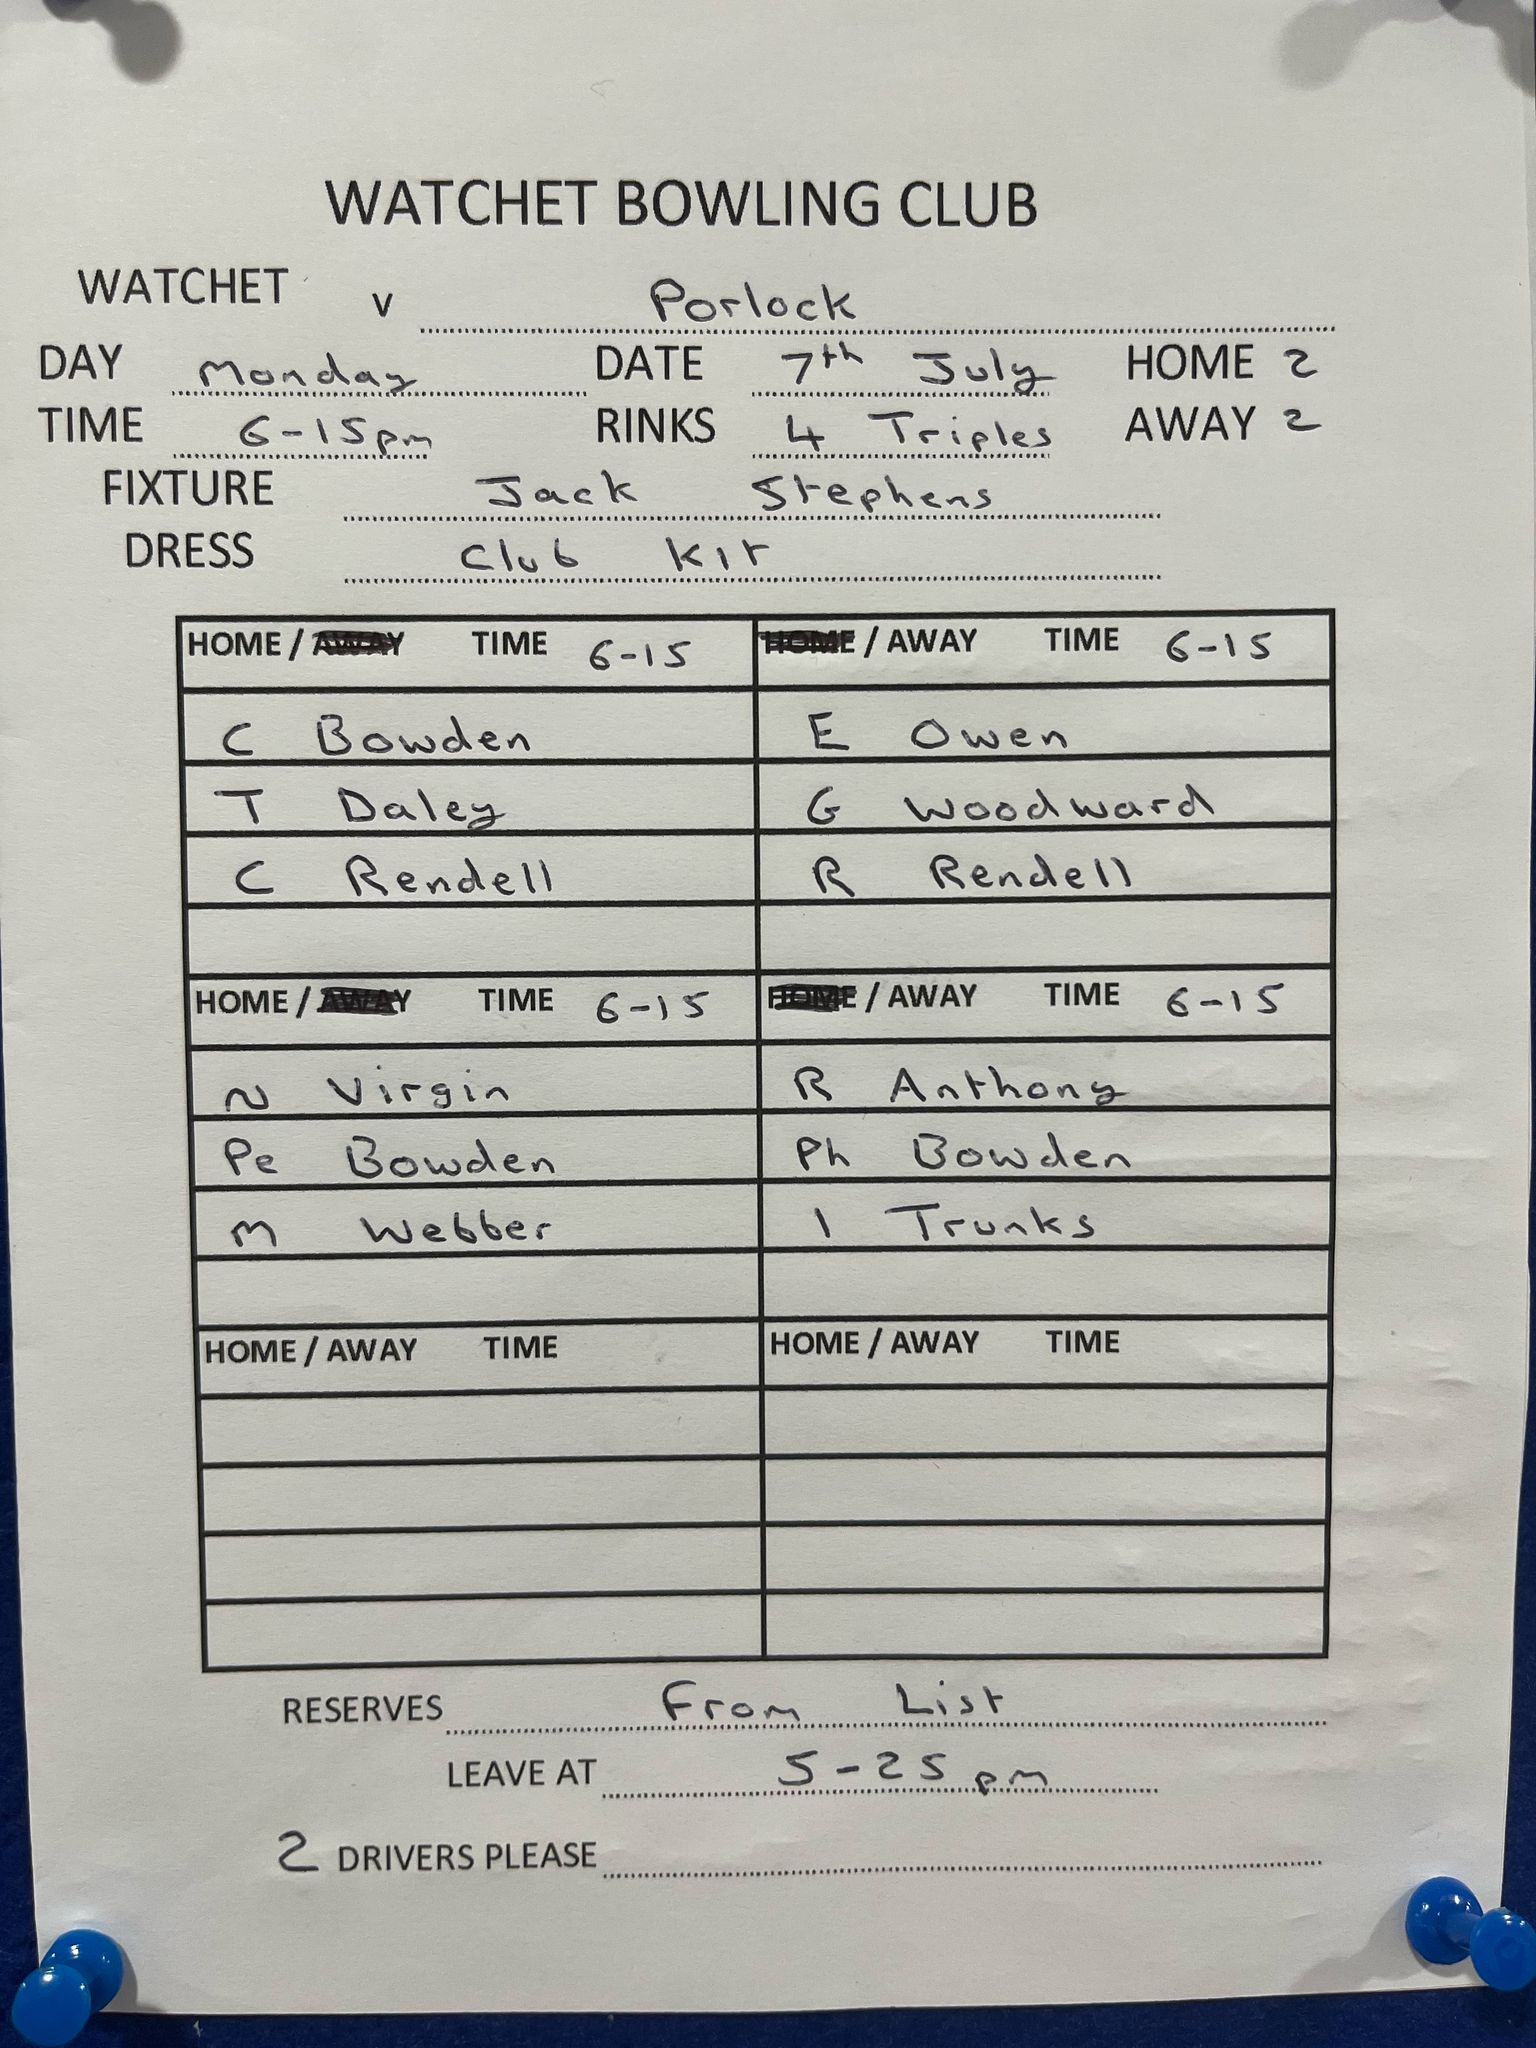 WATCHET BOWLING CLUB
WATCHET v Porlock
DAY Monday DATE 7th July HOME 2
TIME 6-15pm RINKS 4 Triples AWAY 2
FIXTURE Jack Stephens
DRESS Club Kit
HOME / AWAY TIME 6-15 HOME / AWAY TIME 6-15
C Bowden E Owen
T Daley G Woodward
C Rendell R Rendell
HOME / AWAY TIME 6-15 HOME / AWAY TIME 6-15
N Virgin R Anthony
Pe Bowden Ph Bowden
M Webber I Trunks
HOME / AWAY TIME HOME / AWAY TIME
RESERVES From List
LEAVE AT 5-25pm
2 DRIVERS PLEASE